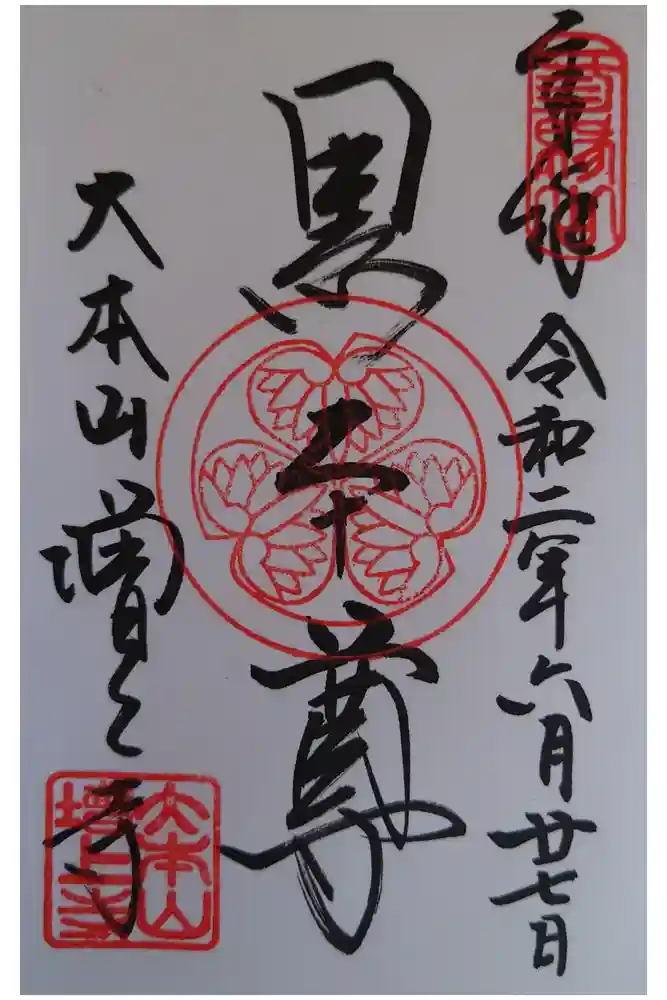 令和二年六月廿七日
黒本尊
大本山増上寺
大本山
増上寺